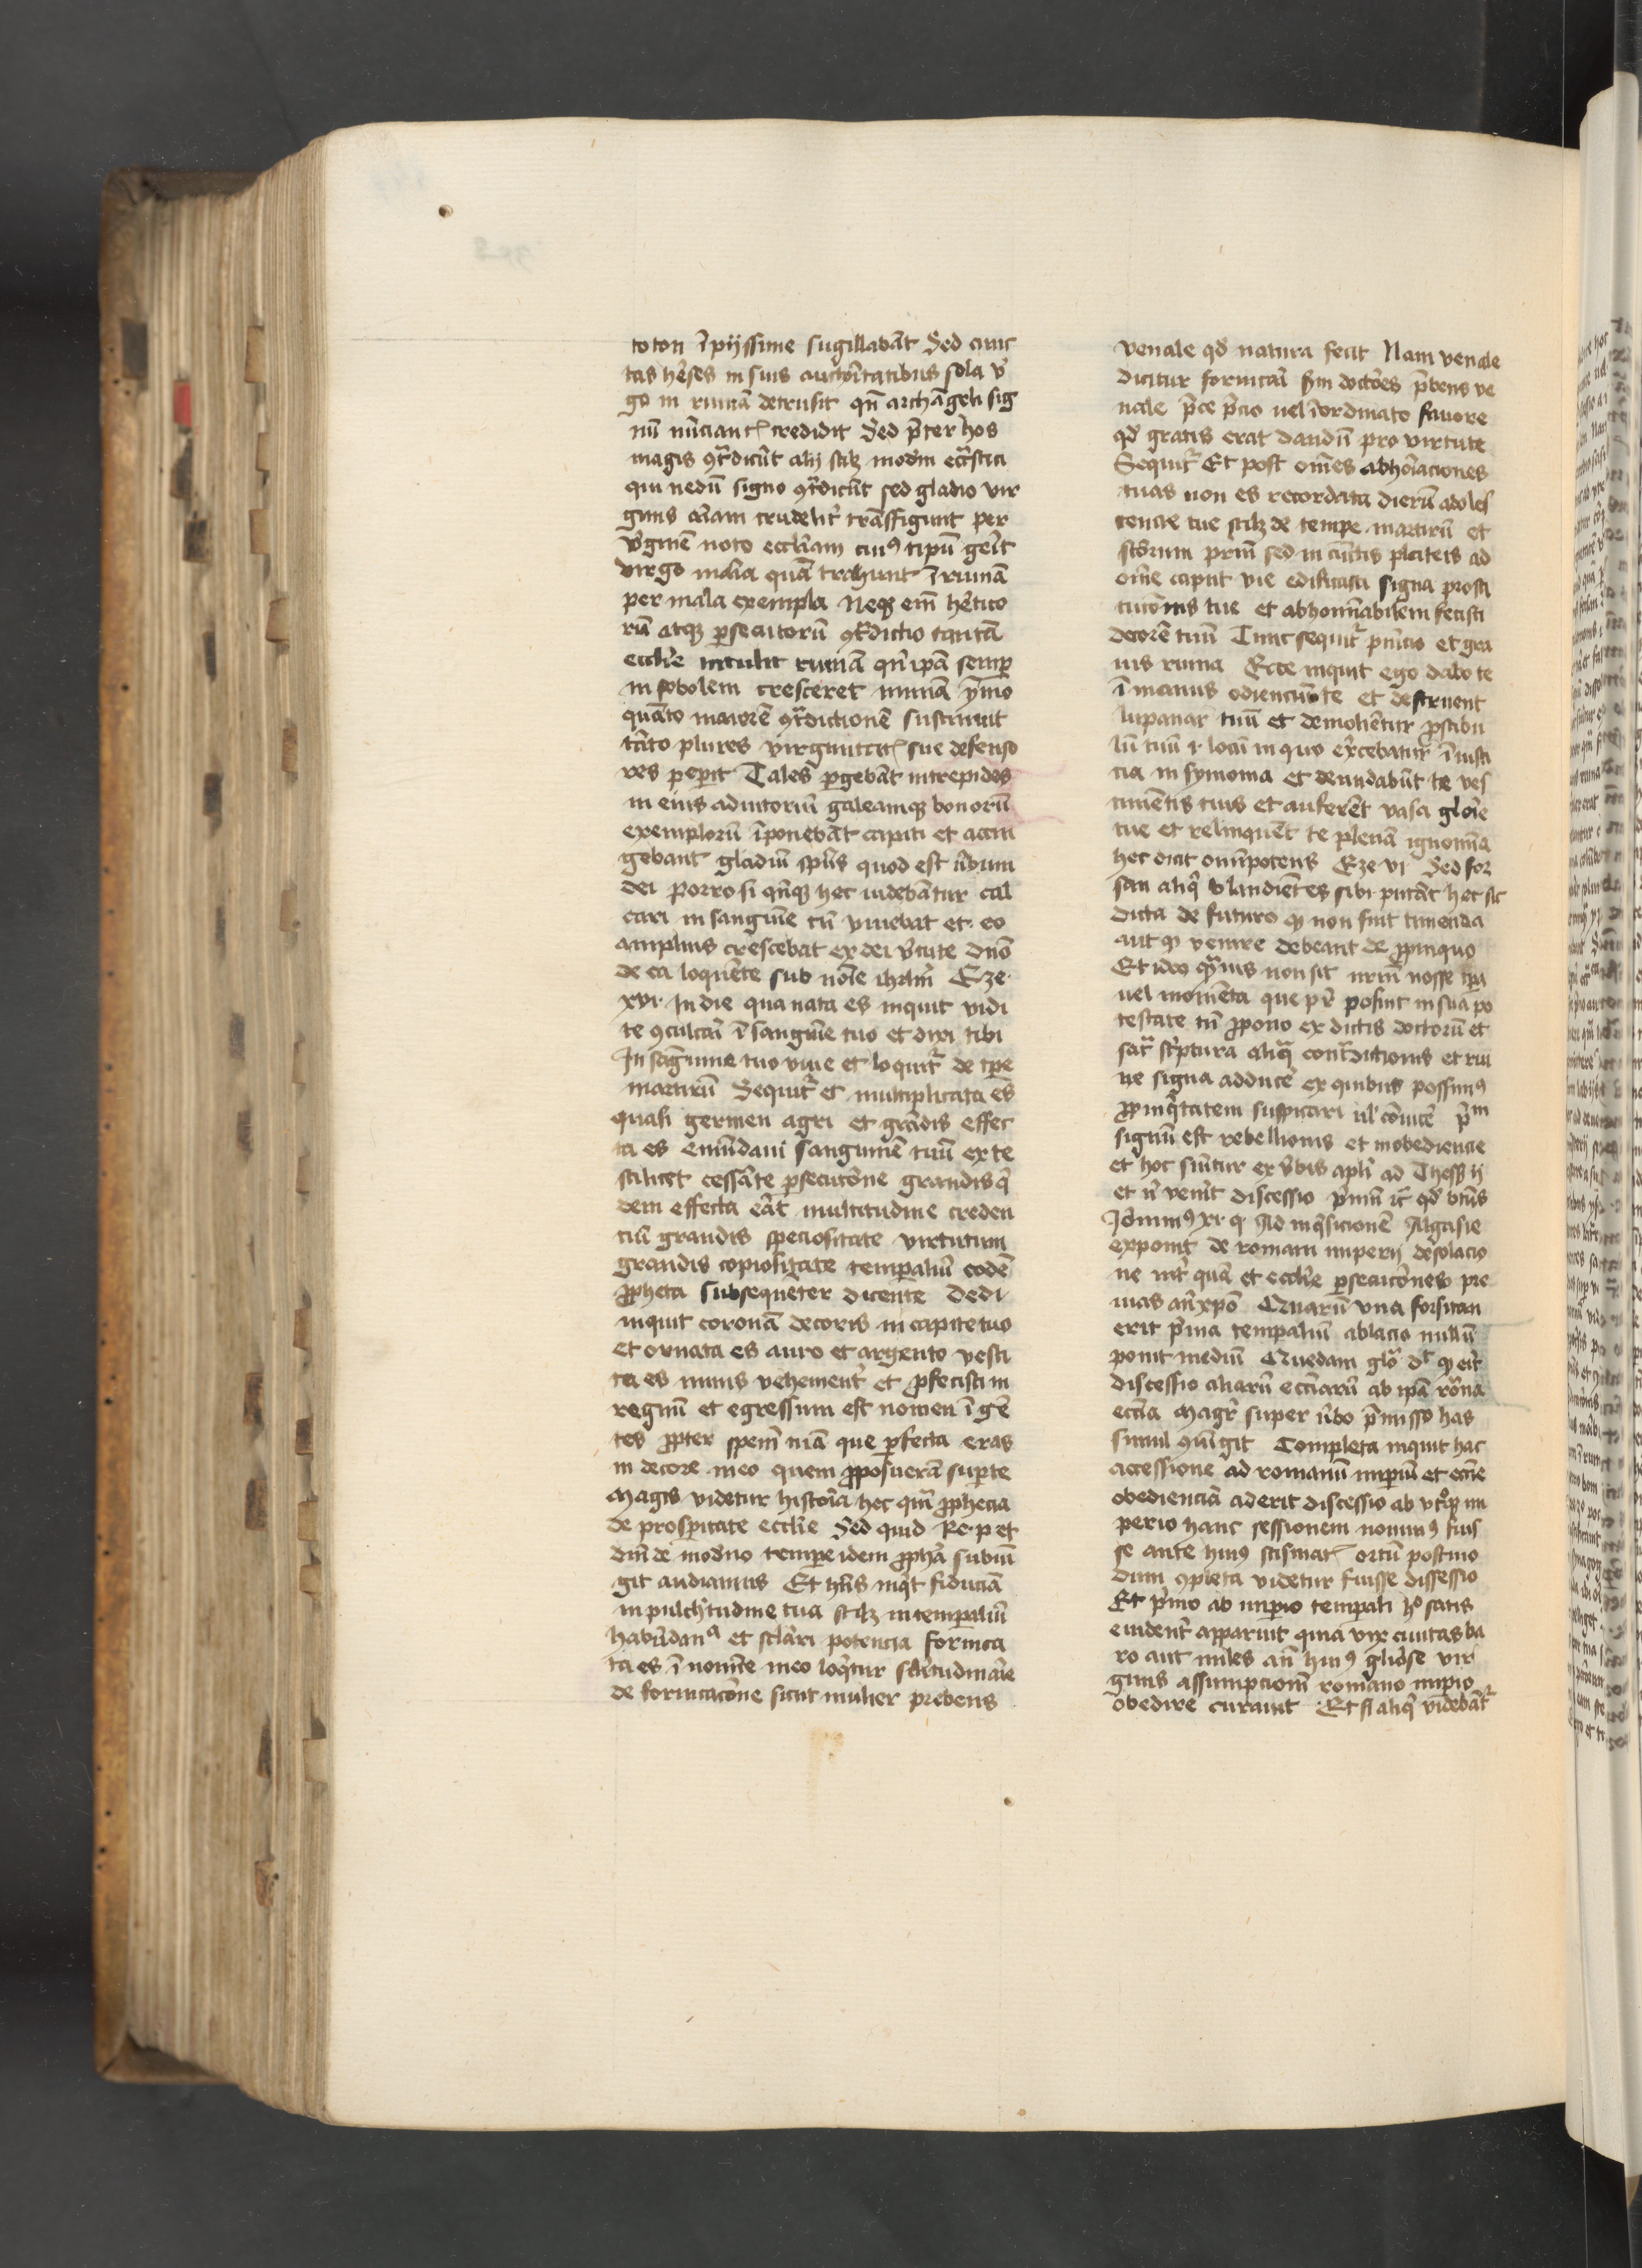 toton īpijssime sugillabāt Sed cunc
tas hēses in suis auctoritatibus sola v̄
go in ruinā detrusit qn̄ archāgeli sig
nū nūciantꝭ credidit Sed p̄ter hos
magis ꝯt̄dicūt alij scilꝫ modn̄i ecc̄stici
qui nedū signo ꝯt̄dicūt sed gladio vir
ginis aīam crudelit̄ trāsfigunt per
v̄ginē noto eccliam cuiꝰ tipū gerit
virgo mā̄ia quā trahunt ī ruinā
per mala exempla Neqꝫ em̄ hētico
rū atqꝫ ꝑsecutorū ꝯt̄dictio tantā
ecclie intulit ruinā qn̄ ipā semꝑ
in sobolem cresceret nimiā ymo
quāto maiorē ꝯt̄dictionē sustinuit
tāto plures virginitatꝭ sue defenso
res peperit Tales ꝑgebāt intrepides
in eius adiutoriū galeamqꝫ bonorū
exemplorū īponebāt capiti et accin
gebant gladiū sp̄us quod est v̄bum
dei Porro si qn̄qꝫ hec videbātur cal
cari in sanguīe tn̄ viuebat et eo
amplius crescebat ex dei v̄tute dn̄o
de ea loquēte sub nōīe ihrlm̄ Eze
xvi In die qua nata es inquit vidi
te ꝯculcari ī sanguīe tuo et dixi tibi
In sāguine tuo viue et loquit̄ de tp̄e
martirū Sequit̄ et multiplicata es
quasi germen agri et grādis effec
ta es emūdaui sanguinē tuū ex te
scilicet cessāte ꝑsecucōne grandis q̄
dem effecta erāt multitudine creden
tiū grandis speciositate virtutum
grandis copiositate tempaliū eodē
ꝓpheta subsequēter dicente Dedi
inquit coronā decoris in capite tuo
et ornata es auro et argento vesti
ta es nimis vehement̄ et ꝓfecisti in
regnū et egressum est nomen ī gē
tes ꝓpter speciem tuā que ꝑfecta eras
in decore meo quem ꝓposuerā super te
Magis videtur historia hec qm̄ ꝓphecia
de prosperitate ecclie Sed quid Re p et
dn̄i de modn̄o tempore idem ꝓpha subiū
git audiamus Et hn̄s inq̄t fiduciā
in pulchritudine tua scilꝫ in tempaliū
habūdanᵃ et sclāri potencia fornica
ta es ī nomīe meo loq̄tur siĺitudinarie
de fornicacōne sicut mulier prebens
venale qd̄ natura fecit Nam venale
dicitur fornicari sm̄ doctores p̄bens ve
nale p̄ce p̄cio uel īordinato fauore
qd̄ gratis erat dandū pro virtute
Sequit̄ Et post om̄es abhoīaciones
tuas non es recordata dierū adoles
cencie tue scilꝫ de tempe martirū et
sctorum patrū sed in cūctis plateis ad
om̄e caput vie edificasti signa prosti
tucōnis tue et abhominabilem fecisti
decorē tuū Tunc sequit̄ punicio et gra
uis ruina Ecce inquit ego dabo te
ī manus odienciū te et destruent
lupanar tuū et demolientur ꝓstibu
lū tuū i locū in quo ex̄cebatur īiusti
cia in symonia et denudabūt te ves
timētis tuis et auferēt vasa glorie
tue et relinquēt te plenā ignominia
hec dicit omīpotens Eze vi Sed for
san aliq̄ blandientes sibi putāt hec sic
dicta de futuro qꝫ non sint timenda
aut qꝫ venire debeant de ꝓpinquo
Et ideo q̄uis non sit nr̄m nosse tp̄a
uel momēta que pr̄ posuit in sua po
testate tn̄ ꝓpono ex dictis doctorū et
sac̄ scriptura aliq̄ contradictionis et rui
ne signa adduc̄e ex quibus possimꝰ
ꝓpinq̄tatem suspicari uĺ cōuic̄e p̄ᵐ
signū est rebellionis et inobediencie
et hoc sūitur ex v̄bis apĺi ad Thess ij
et n̄ venit discessio p̄mū ic̄ qd̄ btūs
Jeronimꝰ xi q Ad inq̄sicionē Algasie
exponit de romani imperij desolacio
ne int̄ quā et ecclie ꝑsecucōnes pre
uias ant̄xpō Quarū vna forsitan
erit p̄ma tempaliū ablacio nullū
ponit mediū Quedam glō dᵗ qꝫ erit
discessio aliarū ecciarū ab ipa rōna
ecciā Magr̄ super v̄bo p̄misso has
simul ꝯiūgit Completa inquit hac
accessione ad romanū imperiū et ecciē
obedienciā aderit discessio ab vtroqꝫ im
perio hanc sessionem nouimꝰ fuis
se ante huiꝰ scismatꝭ ortū postmo
dum ꝯpleta videtur fuisse dissessio
Et p̄mo ab imperio temporali h° satis
euident̄ apparuit quia vix ciuitas ba
ro aut miles an̄ huiꝰ gloriose vir
ginis assumpciom̄ romano imperio
obedire curauit Et si aliq̄ videbāt̄